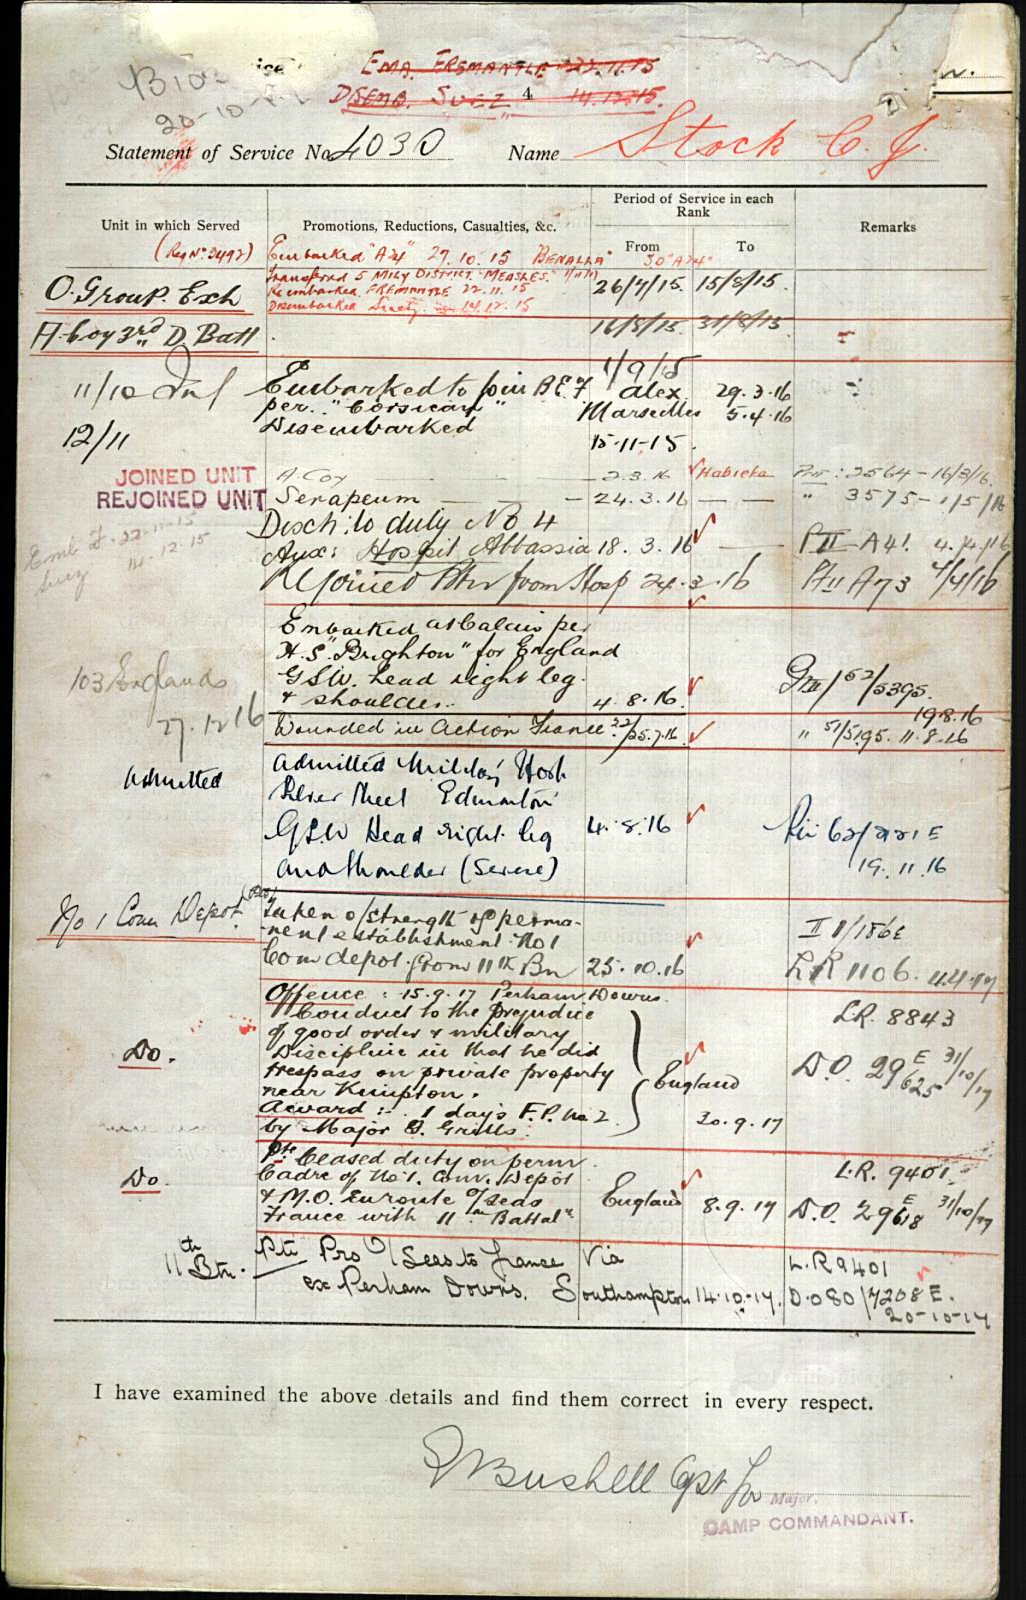 EMB. FREMANTLE 22.11.15
DISEMB. SUEZ 4 14.12.15.
20-10
Statement of Service No. 4030 Name Stock C. J.
Unit in which Served
Promotions, Reductions, Casualties, &c.
Period of Service in each Rank
From
To
Remarks
(Reg No 3492)
Embarked "A24" 29.10.15 BENALLA"
Transferred 5 MILY DISTRICT "MEASLES"
Re embarked FREMANTLE 22.11.15
Disembarked Suez 14.12.15
O. Group. Exh 26/7/15. 15/8/15.
A. boy 3rd D Batt 16/8/15. 31/8/15
11/10 Inf 1/9/15
Embarked to join B.E.F Alex 29.3.16
per. "Corsican" Marseilles 5.4.16
Disembarked
12/11 15-11-15.
JOINED UNIT A. Coy 2.3.16 Habieta 2564 - 16/3/16
REJOINED UNIT Serapeum — — 24.3.16 — — " 3575 - 1/5/16
Emb F. 22-11-15
Suez 14.12.15
Disch: to duty No 4
Aux: Hospit Abbassia 18.3.16 — PII A41. 4/4/16
Rejoined Btn from Hosp 24.3.16 Pt II A73 4/4/16
103 England
27.12.16
Embarked at Calais per
H.S. "Brighton" for England
G.S.W. head right leg
& shoulder. 4.8.16. 152/5395.
19.8.16
Wounded in Action France 22/25.7.16. " 51/5195. 11.8.16
Admitted
Admitted Military Hosp
Silver Street Edmonton
G.S.W Head right leg 4.8.16 62/7221 E
and Shoulder (Severe) 19.11.16
No 1 Com Depot.
Taken o/strength of perma-
-nent establishment No 1 II 8/186E
Com depot. from 11th Bn 25.10.16 LR 1106. 4.4.17
Offence: 15.9.17 Perham Downs.
Conduct to the prejudice L.R. 8843
of good order & military
Do. Discipline in that he did
trespass on private property England D.O. 29 E/625 31/10/17
near Kimpton.
Award :- 1 days F.P. No 2
by Major J. Grills. 20.9.17
Do Pte Ceased duty on perm
Cadre of No 1. Com. Depot L.R. 9401.
& M.O. Enroute o/seas England 8.9.17 D.O. 29 E/618 31/10/17
France with 11th Battaln
11th Btn. Pte Pro O/Seas to France Via L.R 9401
ex Perham Downs. Southampton 14.10.17. D.O 80/7208 E.
20-10-17
I have examined the above details and find them correct in every respect.
Bushell Capt for
Major.
CAMP COMMANDANT.